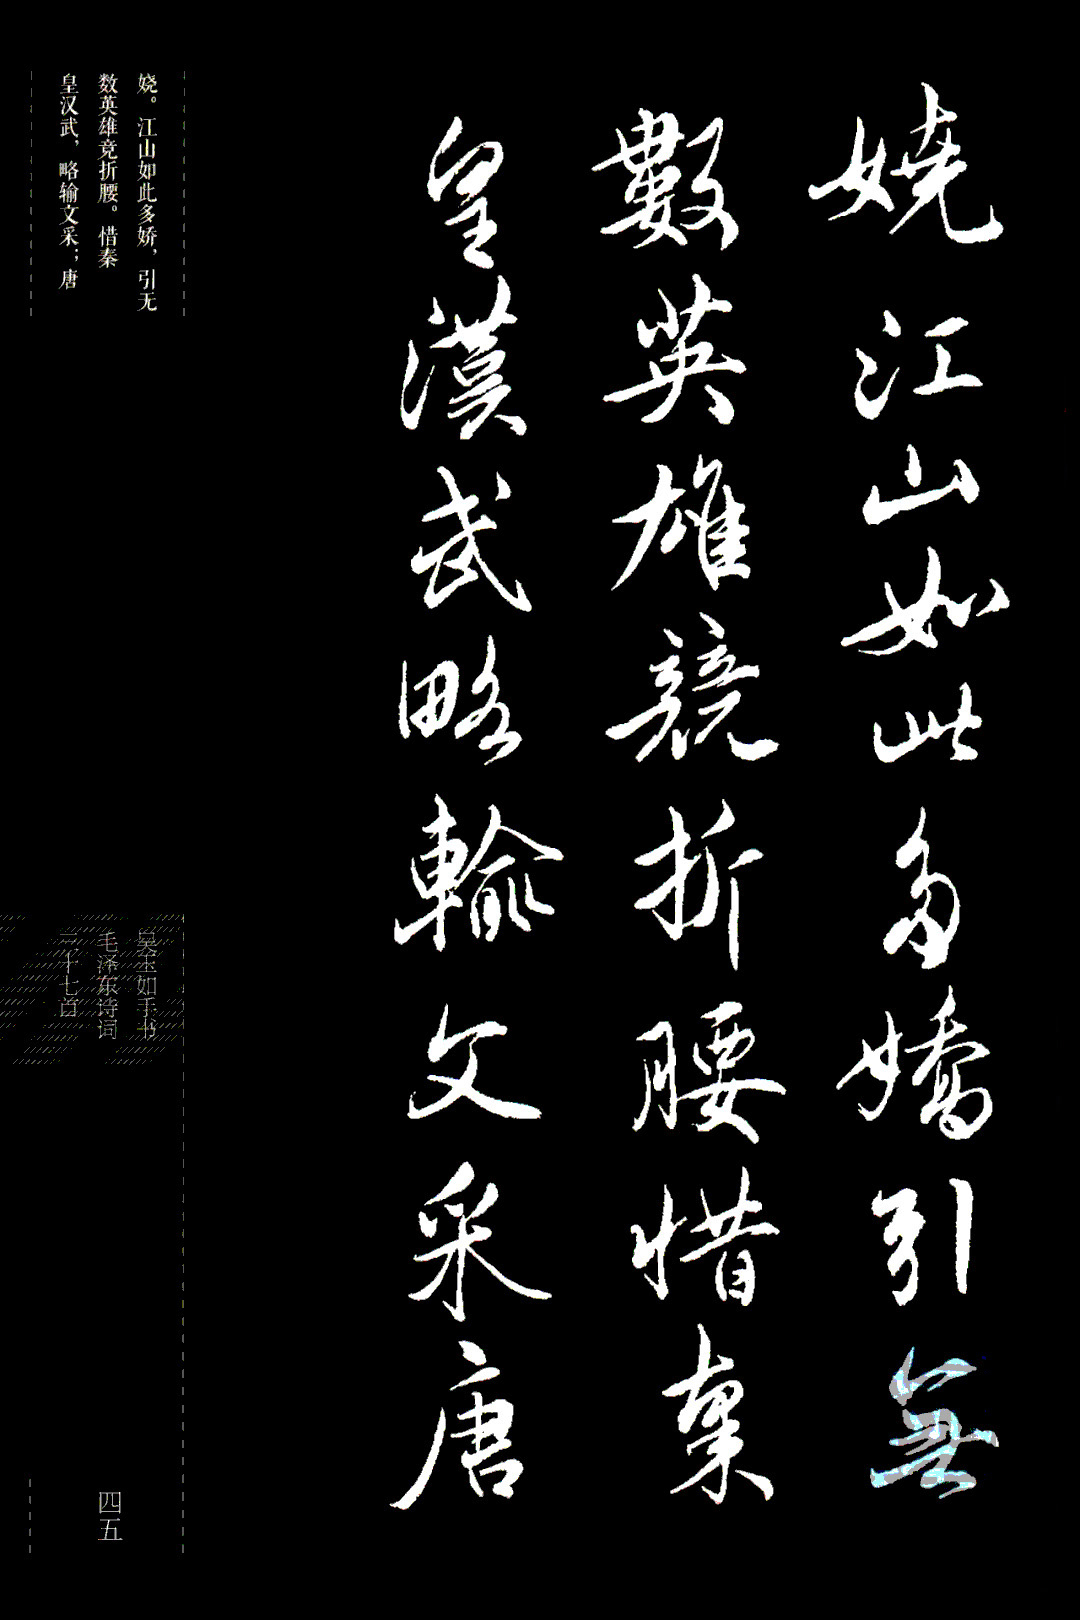 嬈江山如此多嬌引無
數英雄競折腰惜秦
皇漢武略輸文采唐
娆。江山如此多娇，引无
数英雄竞折腰。惜秦
皇汉武，略输文采；唐
吴玉如手书
毛泽东诗词
三十七首
四五